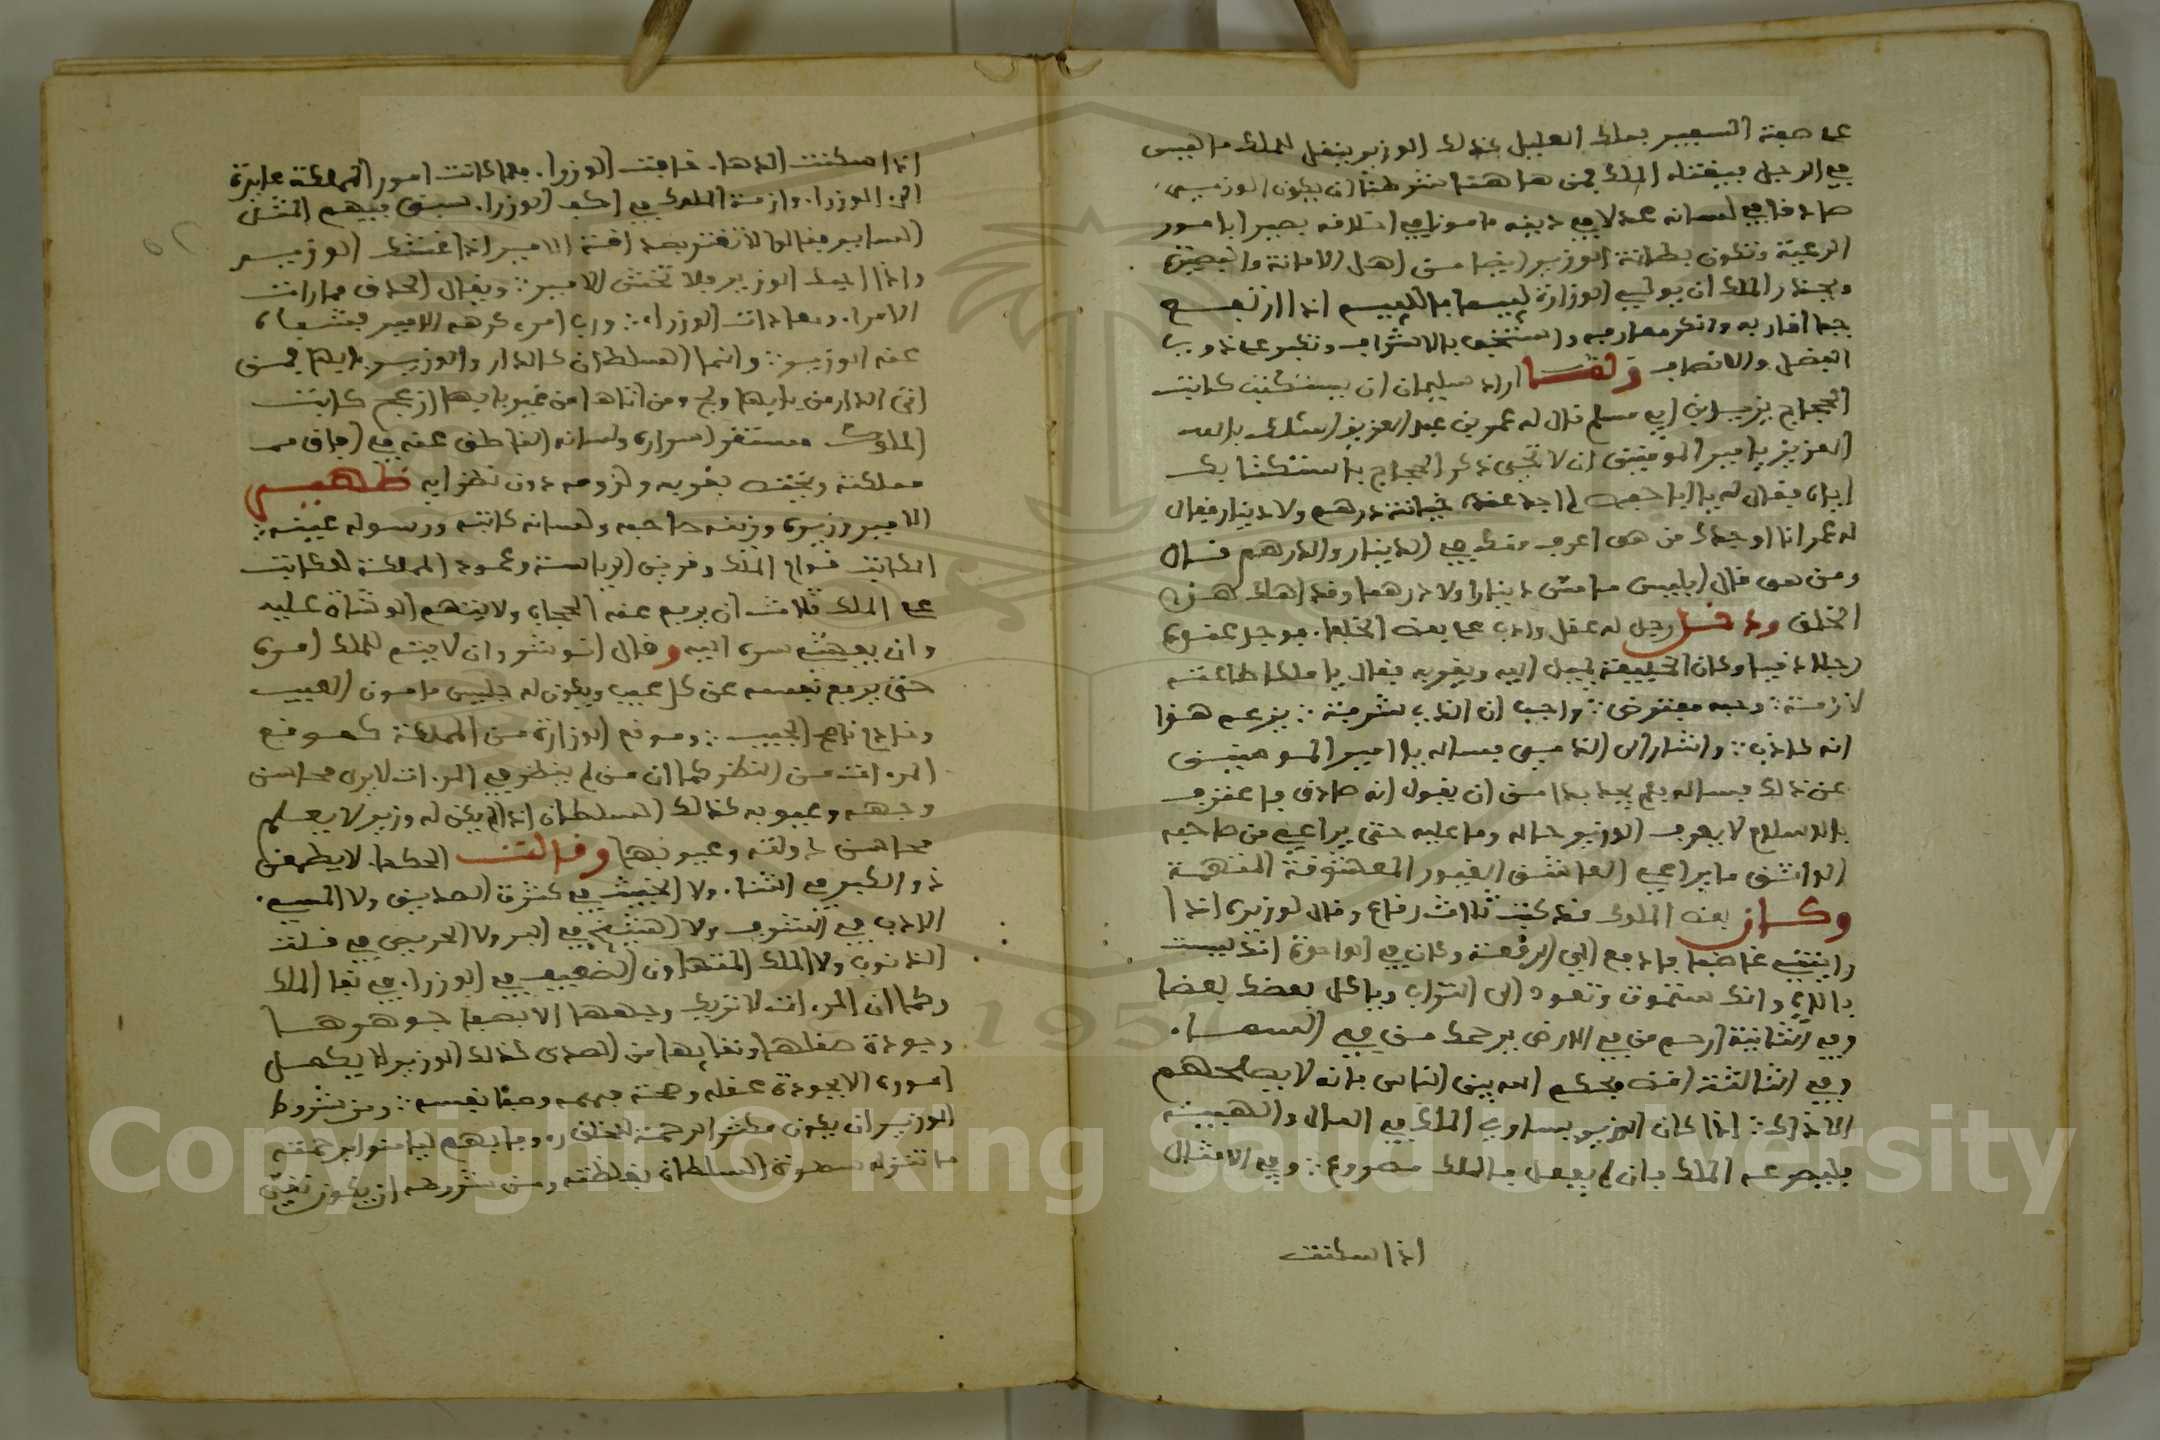 على صفة السفير يهلك العليل كذلك الوزير ينقل للملك ما ليس
في الرجل فيقتله الملك فمن هاهنا شرطنا ان يكون الوزير
صادقا في لسانه عدلا في دينه مامونا في اخلاقه بصيرا بامور
الرعية وتكون بطانة الوزير ايضا من اهل الامانة والبصيرة
ويحذر الملك ان يولي الوزارة لييما فاللييم اذا ارتفع
جفا اقاربه وانكر معارفه واستخف بالاشراف وتكبر على ذوي
الفضل والانصاف ولما اراد سليمان ان يستكتب كاتب
الحجاج يزيد بن ابي مسلم قال له عمر بن عبد العزيز اسئلك بالله
العزيز يامير المومنين ان لا تحيي ذكر الحجاج باستكتابك
اياه فقال له يا ابا حفص لم اجد عنده خيانة درهم ولا دينار فقال
له عمر انا اوجدك من هو اعف منه في الدينار والدرهم قال
ومن هو قال ابليس ما مس دينارا ولا درهما وقد اهلك هذا
الخلق ودخل رجل له عقل وادب على بعض الخلفاء فوجد عنده
رجلا ذميا وكان الخليفة يميل اليه ويقربه فقال يا ملكا طاعته
لازمة وحبه مفترض واجب ان الذي شرفت يزعم هذا
انه كاذب واشار الى الذمي فسله يا امير المومنين
عن ذلك فساله فلم يجد بدا من ان يقول انه صادق فاعترف
بالاسلام لا يعرف الوزير حاله وما عليه حتى يراعي من صاحبه
الواشق ما يراعي العاشق الغيور المعشوقة المتهمة
وكان بعض الملوك قد كتب ثلاث رقاع وقال لوزيره اذا
رايتني غاضبا فادفع الي الرقعة وكان في الواحدة انك ليست
بالاه وانك ستموت وتعود الى التراب وياكل بعضك بعضا
وفي الثانية ارحم من في الارض يرحمك من في السماء
وفي الثالثة اقض بحكم الله بين الناس فانه لا يصلحهم
الا ذاك اذا كان الوزير يساوي الملك في المال والهيبة
فليصرعه الملك فان لم يفعل فالملك مصروع وفي الامثال
اذا سكنت
اذا سكنت الدهاء خافت الوزراء فلما كانت امور المملكة عايدة
الى الوزراء وازمة الملوك في اكف الوزراء سبق فيهم المثل
الساير فقالوا لا تغتر بصداقة الامير اذا غشك الوزير
واذا احبك الوزير فلا تخش الامير ويقال الحذق مدارات
الامراء ومعادات الوزراء ورب امر كرهه الامير فتثناه
عنه الوزير وانما السلطان كالدار والوزير بابها فمن
اتى الدار من بابها ولج ومن اتاها من غير بابها ازعج كاتب
الملوك مستقر اسراره ولسانه الناطق عنه في افاق
مملكته ويختص بقربه ولزومه دون نظرايه ظهير
الامير وزيره وزينه حاجبه ولسانه كاتبه ورسوله عينه
الكاتب قوام الملك وقرين الرياسة وعمود المملكة للكاتب
على الملك ثلاث ان يرفع عنه الحجاب ولا يتهم الوشاة عليه
وان يفشي سره اليه وقال انوشروان لا يتم للملك امره
حتى يرفع نفسه عن كل عيب ويكون له جليس مامون الغيب
وخادم ناصح الجيب وموقع الوزارة من المملكة كموقع
المراة من النظر كما ان من لم ينظر في المراة لا يرى محاسن
وجهه وعيوبه كذلك السلطان اذا لم يكن له وزير لا يعلم
محاسن دولته وعيوبها وقالت الحكماء لا يطمعن
ذو الكبر في الثناء ولا الخبيث في كثرة الصديق ولا السيء
الادب في الشرف ولا الشحيح في البر ولا الحريص في قلة
الذنوب ولا الملك المتهاون الضعيف الوزراء في بقاء الملك
وكما ان المراة لا تريك وجهك الا بصفاء جوهرها
وجودة صقلها ونقايها من الصدى كذلك الوزير لا يكمل
اموره الا بجودة عقله وصحة فهمه وصفا نفسه ومن شروط
الوزير ان يكون مكثر الرحمة للخلق رءوفا بهم ليامنوا برحمته
ما تثوله سطوة السلطان بغلظته ومن شروطه ان يكون نقي
Copyright © King Saud University
1957